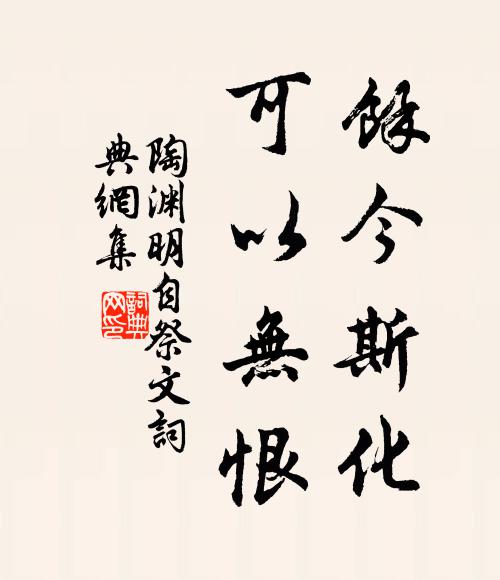 餘今斯化
可以無恨
陶渊明自祭文詞
典網集
詞典
网印